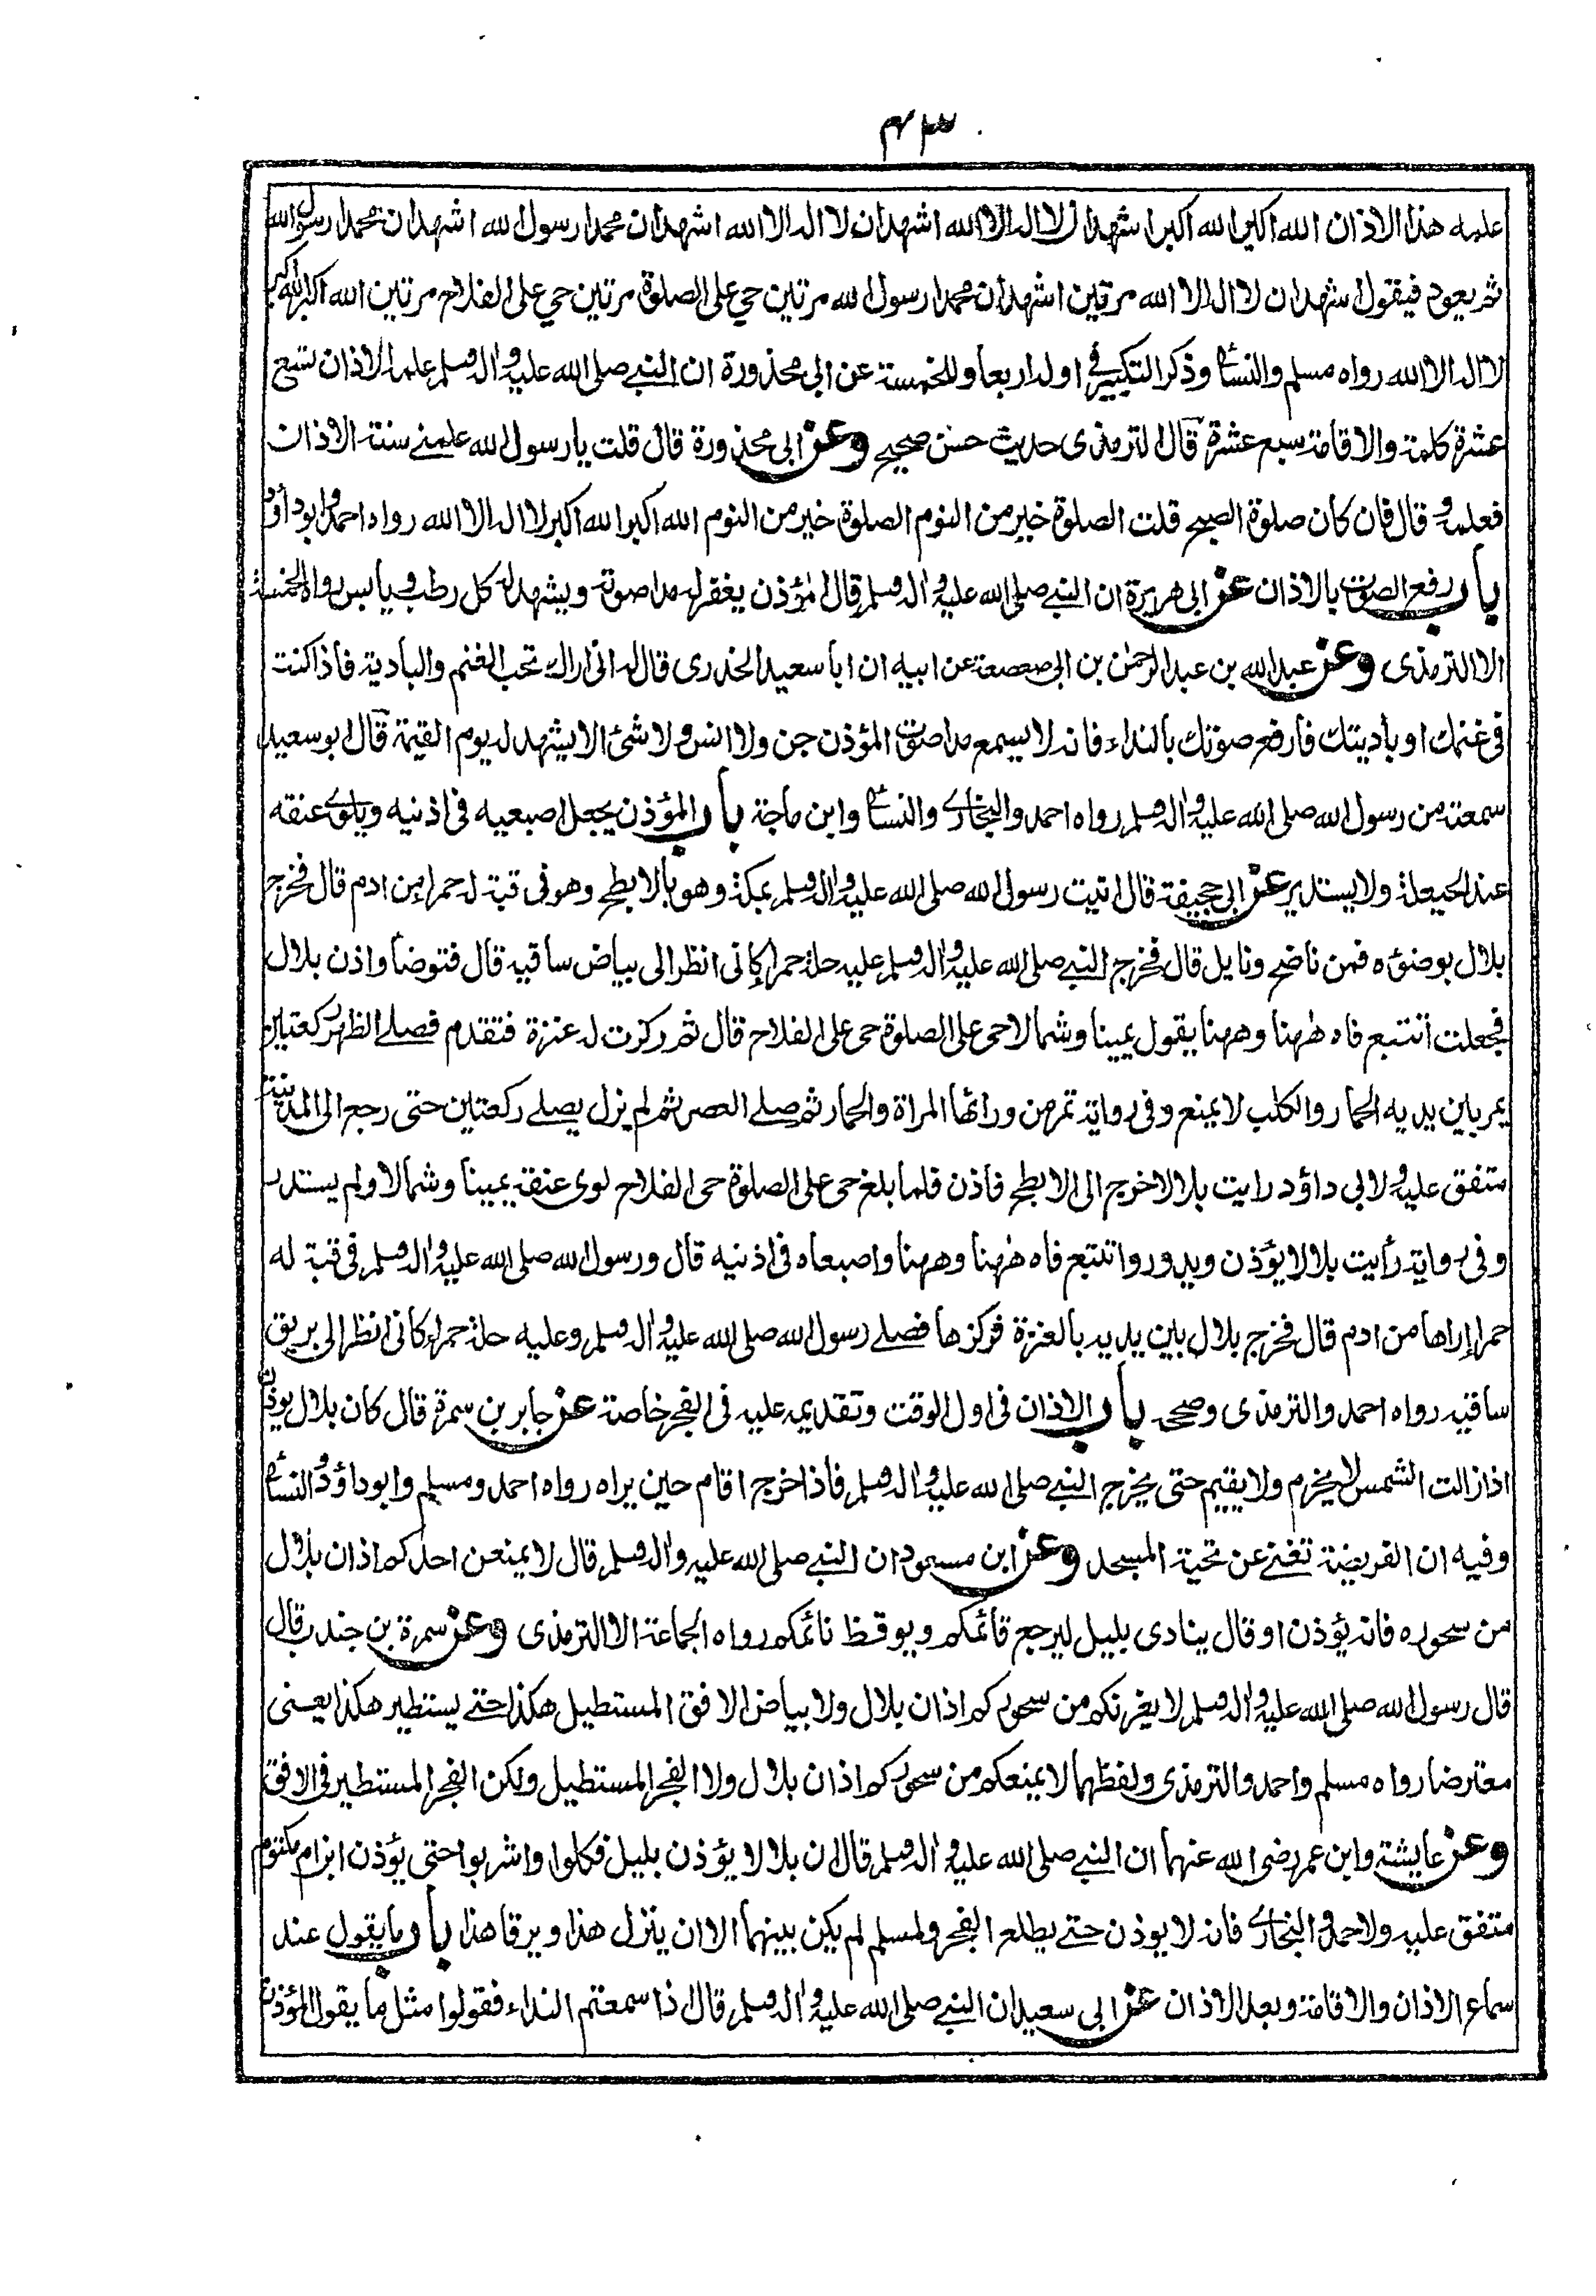 ٤٣
علمه هذا الاذان الله اكبر الله اكبر اشهد ان لا اله الا الله اشهد ان لا اله الا الله اشهد ان محمدا رسول الله اشهد ان محمدا رسول الله
ثم يعود فيقول اشهد ان لا اله الا الله مرتين اشهد ان محمدا رسول الله مرتين حي على الصلوة مرتين حي على الفلاح مرتين الله اكبر الله اكبر
لا اله الا الله رواه مسلم والنسائے وذكر التكبير فے اوله اربعا وللخمسة عن ابي محذورة ان النبے صلى الله عليه واله وسلم علمه الاذان تسع
عشرة كلمة والاقامة سبع عشرة قال الترمذى حديث حسن صحيح وعن ابى محذورة قال قلت يا رسول الله علمنے سنة الاذان
فعلمه و قال فان كان صلوة الصبح قلت الصلوة خير من النوم الصلوة خير من النوم الله اكبر الله اكبر لا اله الا الله رواه احمد وابو داؤد
باب رفع الصوت بالاذان عن ابى هريرة ان النبے صلى الله عليه واله وسلم قال المؤذن يغفر له مد اصوته ويشهد له كل رطب ويابس رواه الخمسة
الا الترمذى وعن عبد الله بن عبد الرحمٰن بن ابى صعصعة عن ابيه ان ابا سعيد الخدرى قال له انى اراك تحب الغنم والبادية فاذا كنت
فى غنمك او باديتك فارفع صوتك بالنداء فانه لا يسمع مدا صوت المؤذن جن ولا انس ولا شئ الا يشهد له يوم القيمة قال ابو سعيد
سمعته من رسول الله صلى الله عليه واله وسلم رواه احمد والبخارے والنسائے وابن ماجة باب المؤذن يجعل اصبعيه فى اذنيه ويلوے عنقه
عند الحيعلة ولا يستدير عن ابى جحيفة قال اتيت رسول الله صلى الله عليه واله وسلم بمكة وهو بالابطح وهو فى قبة له حمراء من ادم قال فخرج
بلال بوضوئه فمن ناضح ونايل قال فخرج النبے صلى الله عليه واله وسلم عليه حلة حمراء كانى انظر الى بياض ساقيه قال فتوضا واذن بلال
فجعلت اتتبع فاه هٰهنا وههنا يقول يمينا وشمالا حى على الصلوة حى على الفلاح قال ثم ركزت له عنزة فتقدم فصلے الظهر ركعتين
يمر بين يديه الحمار والكلب لا يمنع وفى رواية تمر من ورائها المراة والحمار ثم صلے العصر ثم لم يزل يصلے ركعتين حتى رجع الى المدينة
متفق عليه ولابى داؤد رايت بلالا خرج الى الابطح فاذن فلما بلغ حى على الصلوة حى الفلاح لوى عنقه يمينا وشمالا ولم يستدر
وفى رواية رأيت بلالا يؤذن ويدور واتتبع فاه هٰهنا وههنا واصبعاه فى اذنيه قال ورسول الله صلى الله عليه واله وسلم فى قبة له
حمراء اراها من ادم قال فخرج بلال بين يديه بالعنزة فركزها فصلے رسول الله صلى الله عليه واله وسلم وعليه حلة حمراء كانى انظر الى بريق
ساقيه رواه احمد والترمذى وصححه باب الاذان فى اول الوقت وتقديمه عليه فى الفجر خاصة عن جابر بن سمرة قال كان بلال يوذن
اذا زالت الشمس لا يخرم ولا يقيم حتى يخرج النبے صلى الله عليه واله وسلم فاذا خرج اقام حين يراه رواه احمد ومسلم وابو داؤد والنسائے
وفيه ان الفريضة تغنے عن تحية المسجد وعن ابن مسعود ان النبے صلى الله عليه واله وسلم قال لا يمنعن احدكم اذان بلال
من سحوره فانه يؤذن او قال ينادى بليل ليرجع قائمكم ويوقظ نائمكم رواه الجماعة الا الترمذى وعن سمرة بن جندب قال
قال رسول الله صلى الله عليه واله وسلم لا يغرنكم من سحوركم اذان بلال ولا بياض الافق المستطيل هكذا حتے يستطير هكذا يعنى
معترضا رواه مسلم واحمد والترمذى ولفظهما لا يمنعكم من سحوركم اذان بلال ولا الفجر المستطيل ولكن الفجر المستطير فى الافق
وعن عايشة وابن عمر رضى الله عنهما ان النبے صلى الله عليه واله وسلم قال ان بلالا يؤذن بليل فكلوا واشربوا حتى يؤذن ابن ام مكتوم
متفق عليه ولاحمد والبخارے فانه لا يوذن حتے يطلع الفجر ولمسلم لم يكن بينهما الا ان ينزل هذا ويرقا هذا باب ما يقول عند
سماع الاذان والاقامة وبعد الاذان عن ابى سعيد ان النبے صلى الله عليه واله وسلم قال اذا سمعتم النداء فقولوا مثل ما يقول المؤذن